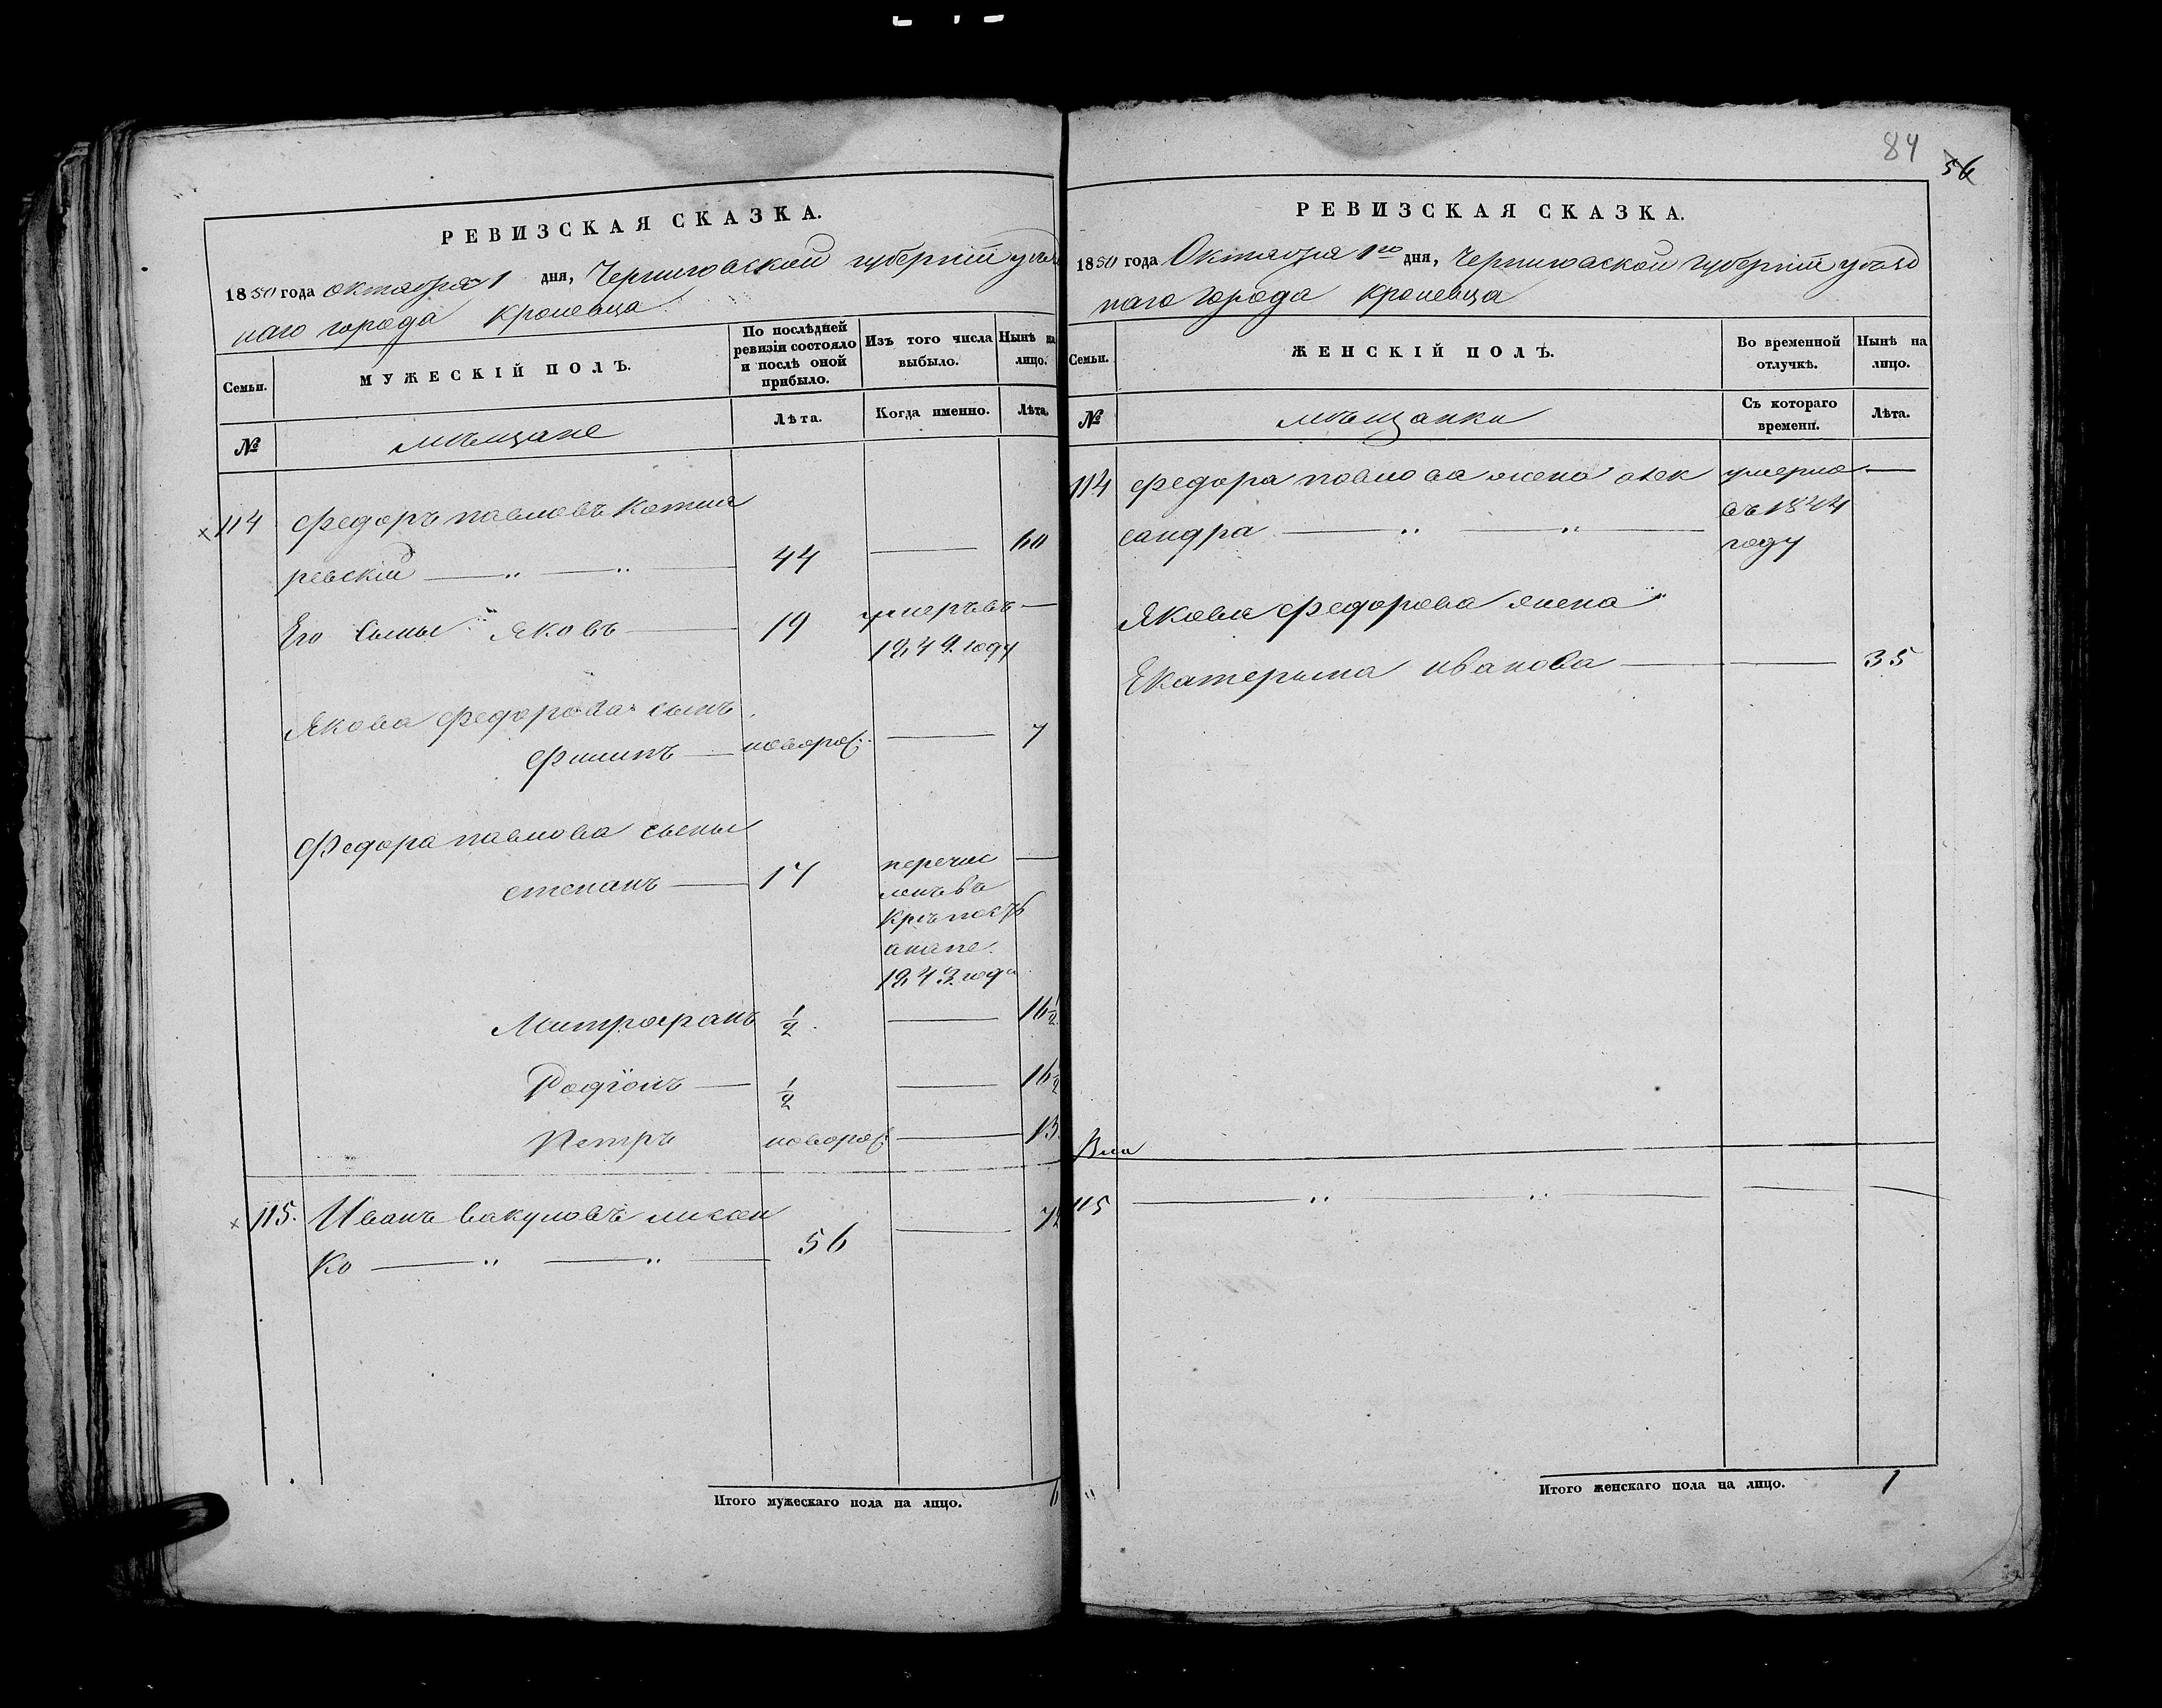 84
56
РЕВИЗСКАЯ СКАЗКА.
1850 года октября 1 дня, Черниговской губернiи уѣзд
наго города Кролевца
Семьи.
МУЖЕСКIЙ ПОЛЪ.
По послѣдней
ревизiи состояло
и послѣ оной
прибыло.
Изъ того числа
выбыло.
Нынѣ на
лицо.
№
мѣщане
Лѣта.
Когда именно.
Лѣта.
114 Федоръ павловъ
ревскiй 44 60
Его Сыны Яковъ 19 умеръ въ
1849 году
Якова Федорова сынъ
Филипъ новорож: 7
Федора павлова сыны
степанъ 17 перечис
ленъ въ
Крѣпость
анапе
1843 года
Митрофанъ ½ 16½
Родiонъ ½ 16½
Петръ новорож: 13
115. Иванъ вакуловъ лисен
ко 56 72
Итого мужескаго пола на лицо. 6
РЕВИЗСКАЯ СКАЗКА.
1850 года Октября 1го дня, Черниговской губернiи уѣзд
наго города Кролевца
Семьи.
ЖЕНСКIЙ ПОЛЪ.
Во временной
отлучкѣ.
Нынѣ на
лицо.
№
мѣщанки
Съ котораго
времени.
Лѣта.
114 Федора павлова жена олек
сандра умерла
въ 1844
году
Якова Федорова жена
Екатерына иванова 35
115
Итого женскаго пола на лицо. 1